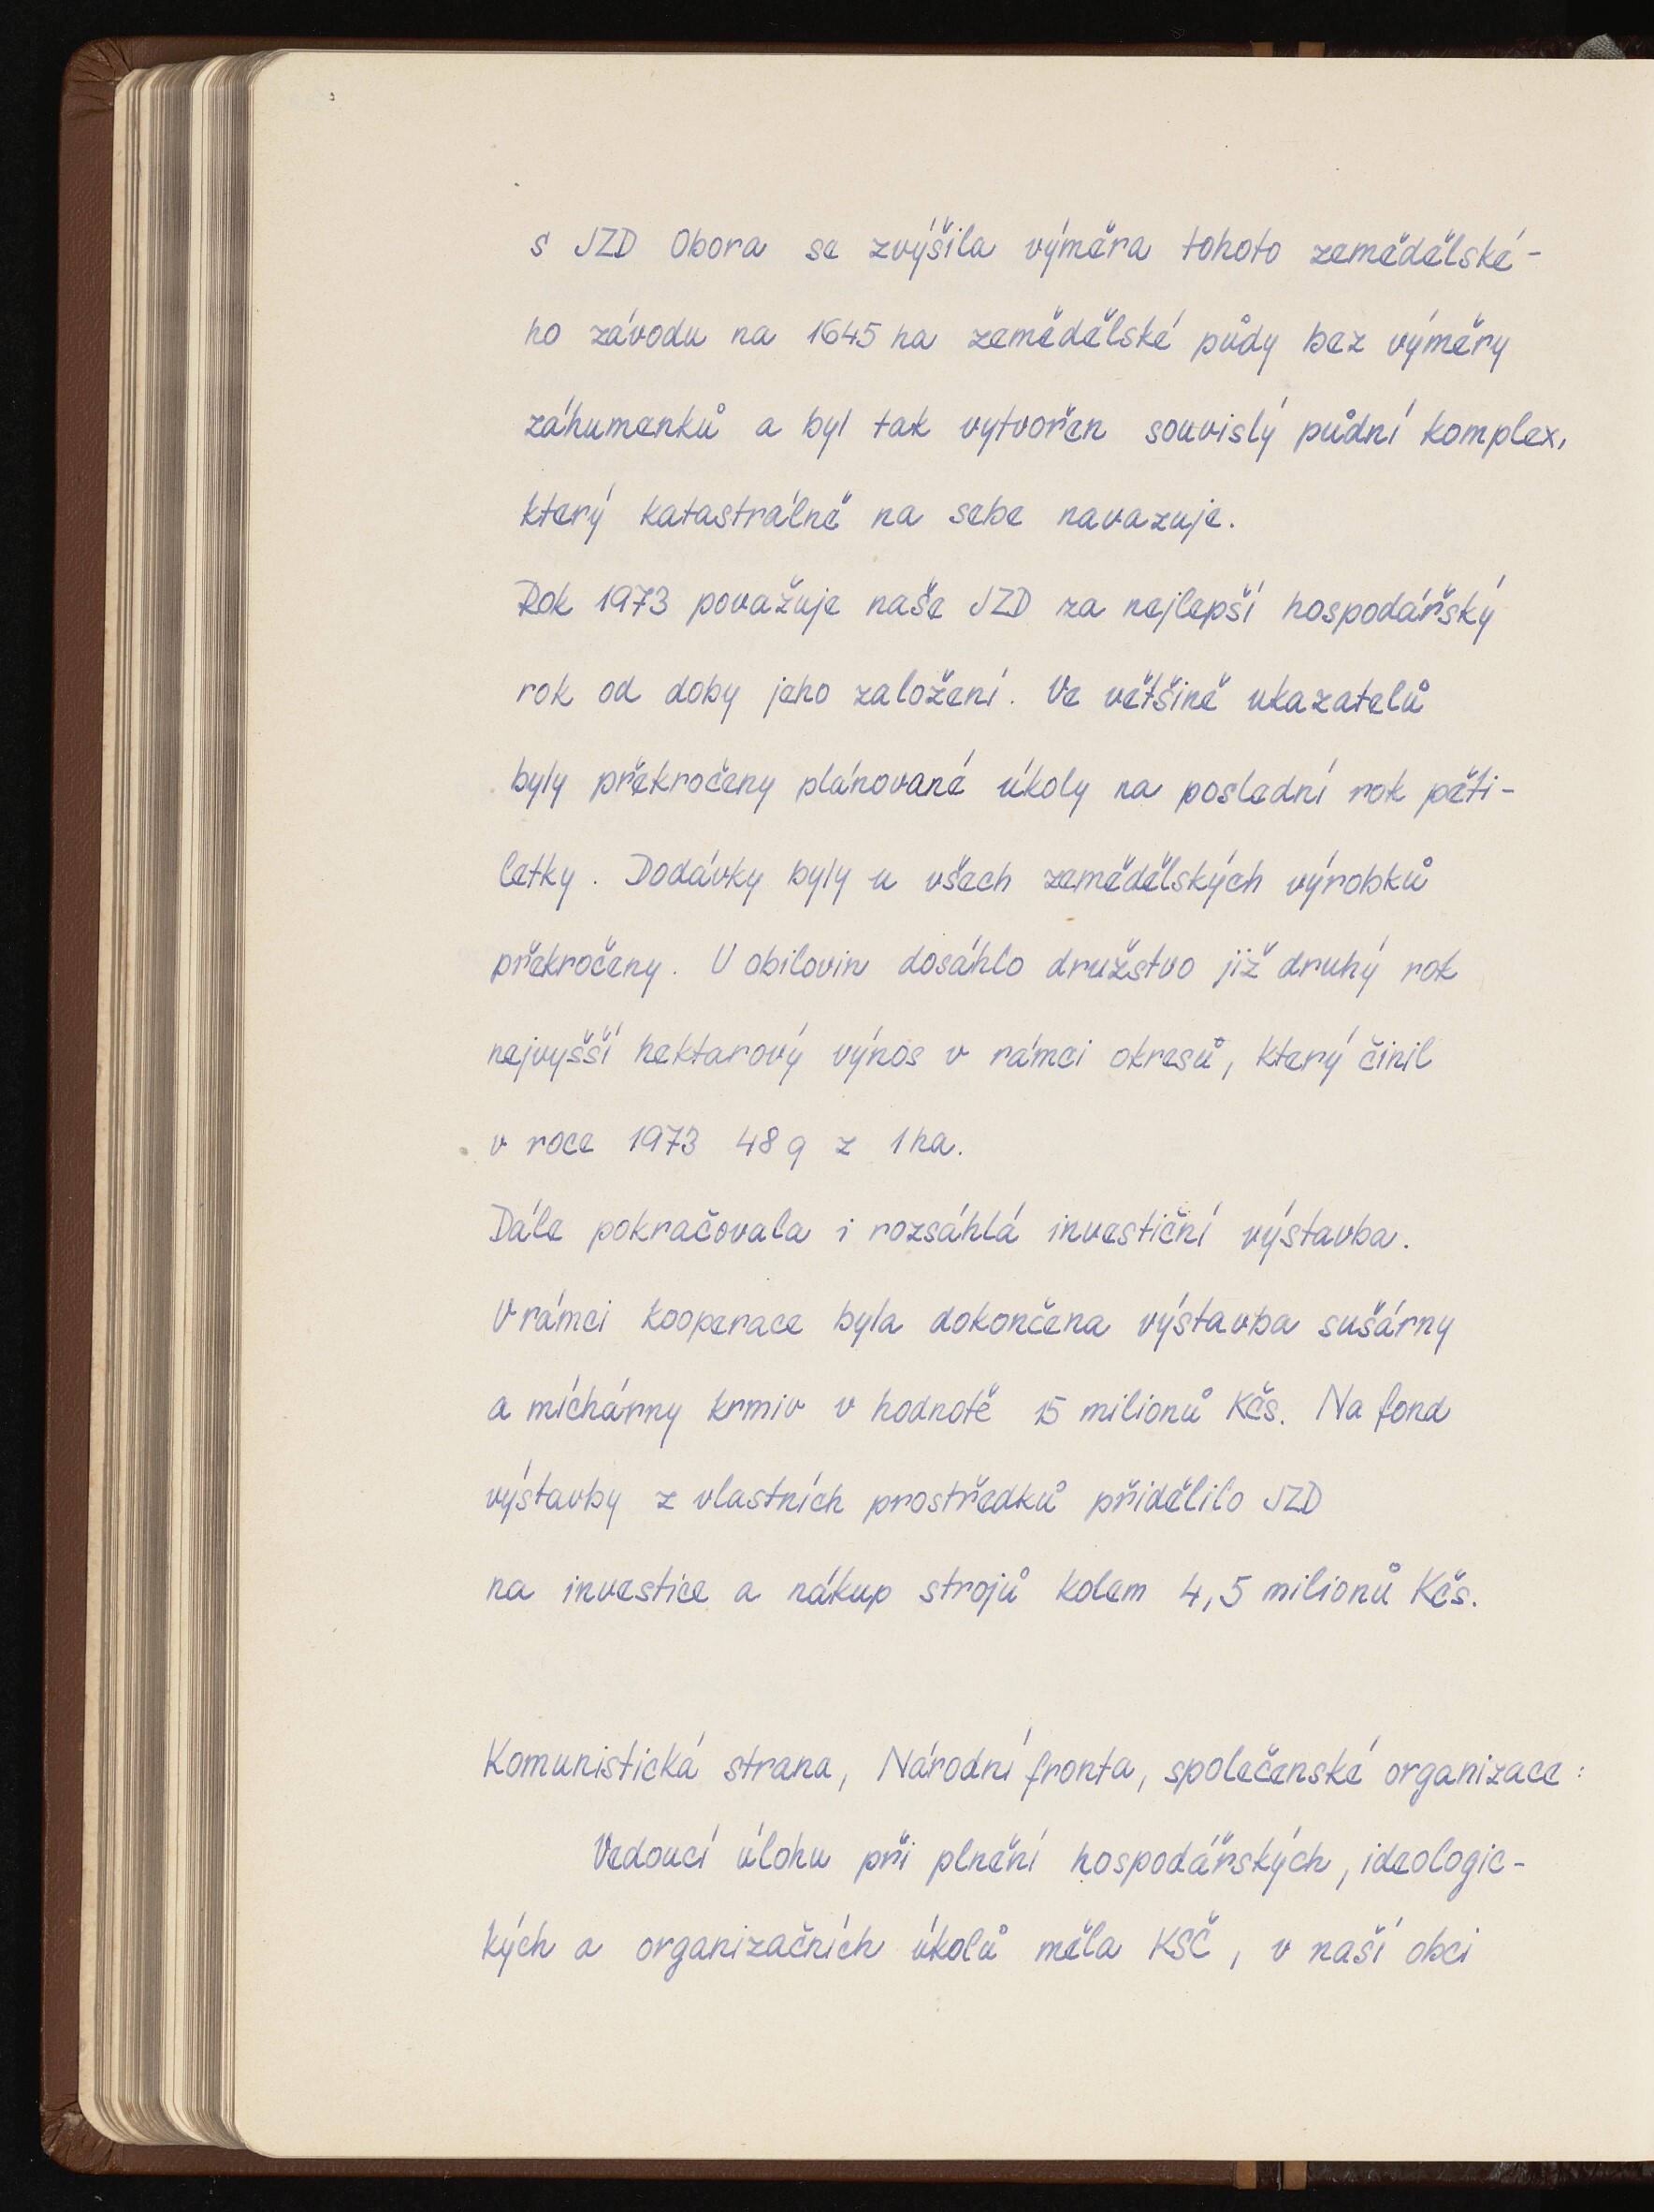 s JZD Obora se zvýšila výměra tohoto zemědělské-
ho závodu na 1645 ha zemědělské půdy bez výměry
záhumenků a byl tak vytvořen souvislý půdní komplex,
který katastrálně na sebe navazuje.
Rok 1973 považuje naše JZD za nejlepší hospodářský
rok od doby jeho založení. Ve většině ukazatelů
byly překročeny plánované úkoly na poslední rok pěti-
letky. Dodávky byly u všech zemědělských výrobků
překročeny. U obilovin dosáhlo družstvo již druhý rok
nejvyšší hektarový výnos v rámci okresů, který činil
v roce 1973 48 q z 1 ha.
Dále pokračovala i rozsáhlá investiční výstavba.
V rámci kooperace byla dokončena výstavba sušárny
a míchárny krmiv v hodnotě 15 milionů Kčs. Na fond
výstavby z vlastních prostředků přidělilo JZD
na investice a nákup strojů kolem 4,5 milionů Kčs.
Komunistická strana, Národní fronta, společenské organizace:
Vedoucí úlohu při plnění hospodářských, ideologic-
kých a organizačních úkolů měla KSČ, v naší obci